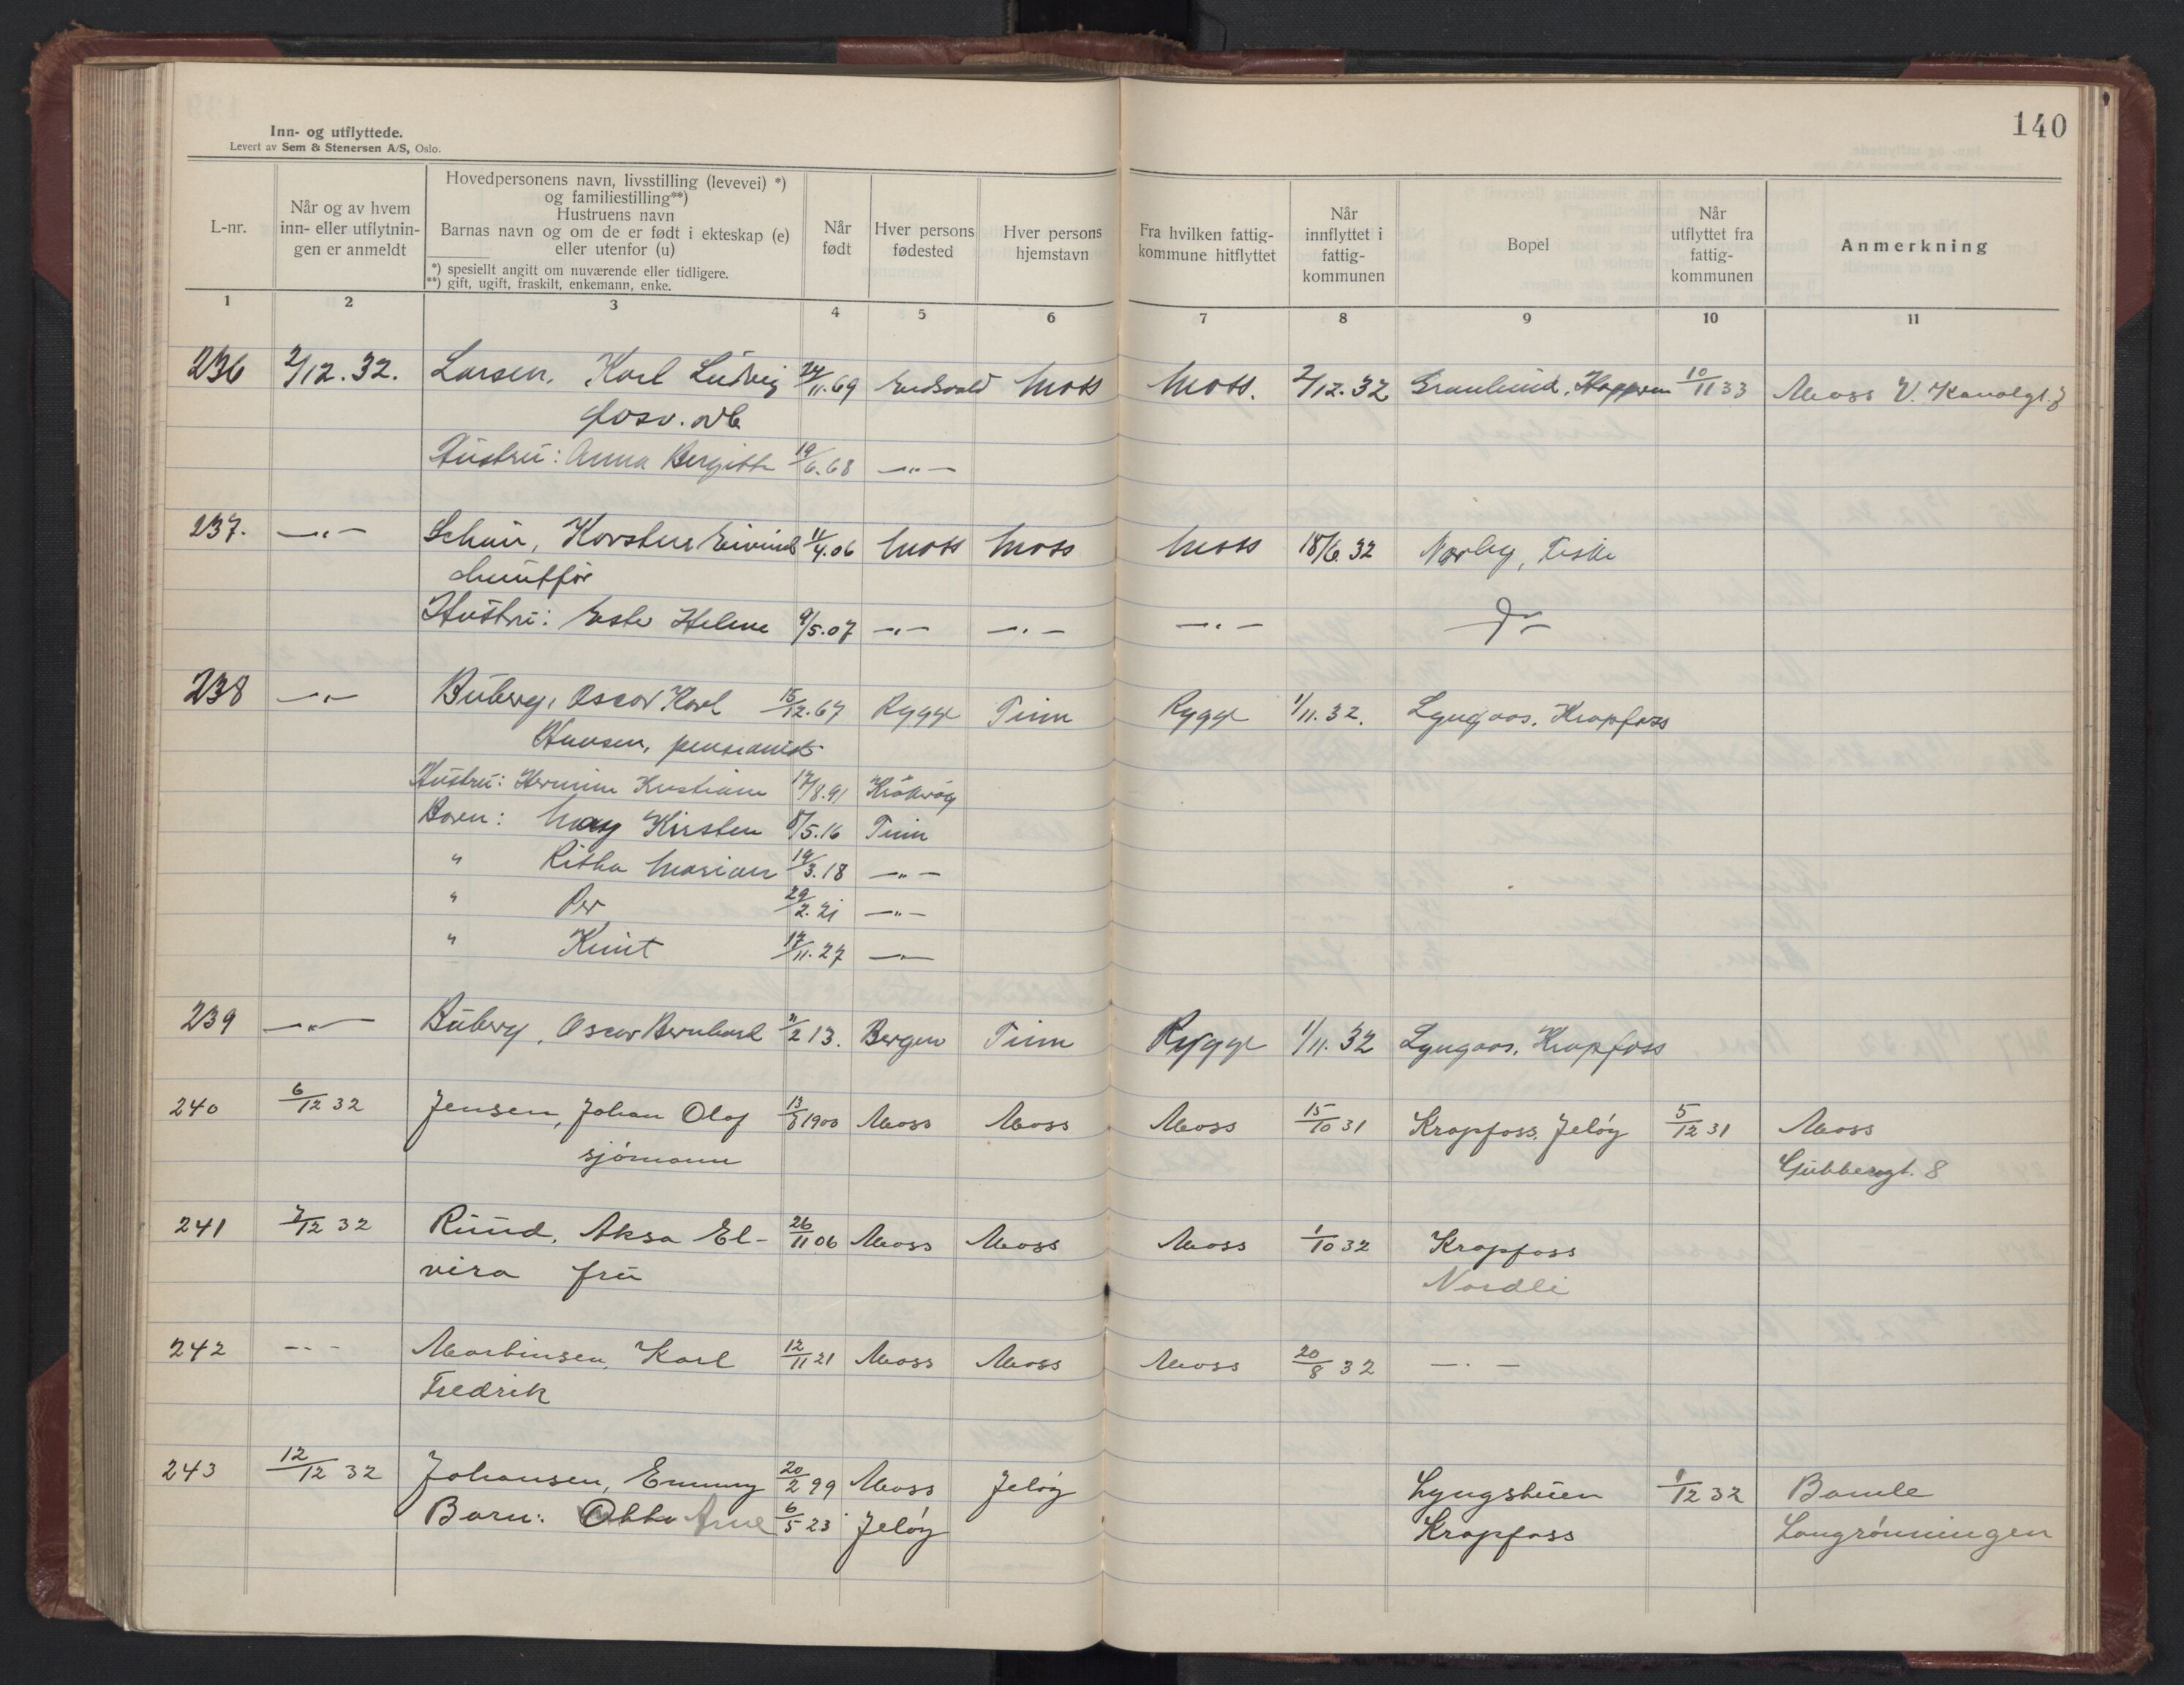 140
Inn- og utflyttede.
Levert av Sem & Stenersen A/S, Oslo.
L-nr.
Når og av hvem inn- eller utflytningen er anmeldt
Hovedpersonens navn, livsstilling (levevei) *)
og familiestilling**)
Hustruens navn
Barnas navn og om de er født i ekteskap (e)
eller utenfor (u)
*) spesiellt angitt om nuværende eller tidligere.
**) gift, ugift, fraskilt, enkemann, enke.
Når født
Hver persons fødested
Hver persons hjemstavn
Fra hvilken fattigkommune hitflyttet
Når innflyttet i fattigkommunen
Bopel
Når utflyttet fra fattigkommunen
Anmerkning
1 2 3 4 5 6 7 8 9 10 11
236 2/12.32. Larsen, Karl Ludvig 24/11.69 Eidsvold Moss Moss. 2/12.32 Granlund, 10/11 33 Moss V. Kanalgt.
Hustru: Anna Bergitte 19/6.68 —„—
237. —„— Karsten Eivind 11/4.06 Moss Moss Moss 18/6 32 Nørby,
Hustru: Helene 9/5.07 —„— —„— —„— Do
238 —„— Buberg, Oscar Karl 15/12.67 Rygge Tinn Rygge 1/11.32. Lyngaas, Krapfoss
Hansen, pensionist
Hustru: Hermine Kristiane 17/8.91 Kråkerøy
Barn: May Kirsten 8/5.16 Tinn
„ Ritha Marian 19/3.18 —„—
„ Per 29/2.21 —„—
„ Knut 17/11.27 —„—
239 —„— Buberg, Oscar Bernhard 11/2 13. Bergen Tinn Rygge 1/11.32 Lyngaas, Krapfoss
240 6/12 32 Jensen, Johan Olaf 13/8 1900 Moss Moss Moss 15/10 31 Krapfoss, Jeløy 5/12 31 Moss
sjømann Gubbergt. 8
241 7/12 32 Ruud, Aksa El- 26/11 06 Moss Moss Moss 1/10 32 Krapfoss
vira fru Nordli
242 —„— Martinsen, Karl 12/11 21 Moss Moss Moss 20/8 32 —„—
Fredrik
243 12/12 32 Johansen, Emmy 20/2 99 Moss Jeløy Lyngstuen 1/12 32 Bamle
Barn: Otto Arne 6/5 23 Jeløy Krapfoss Langrønningen